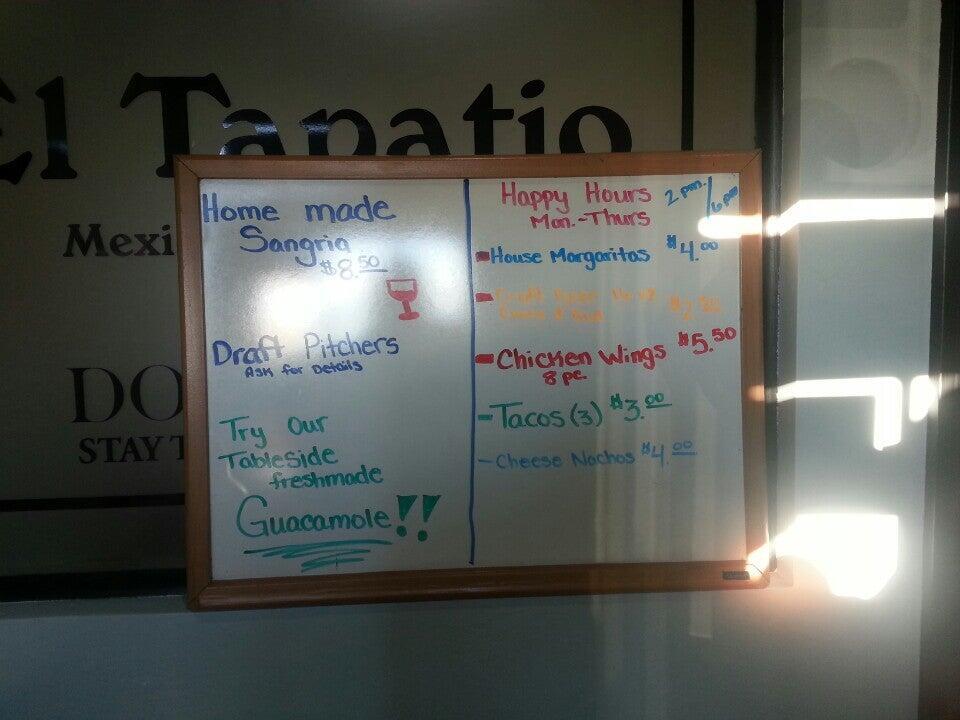 El Tapatio
Mexi
DO
STAY T
Home made
Sangria
$8.50
Draft Pitchers
Ask for Details
Try Our
Tableside
freshmade
Guacamole!!
Happy Hours 2 pm./6 pm
Mon.-Thurs
- House Margaritas $4.00
- Chicken Wings $5.50
8 pc.
- Tacos (3) $3.00
- Cheese Nachos $4.00